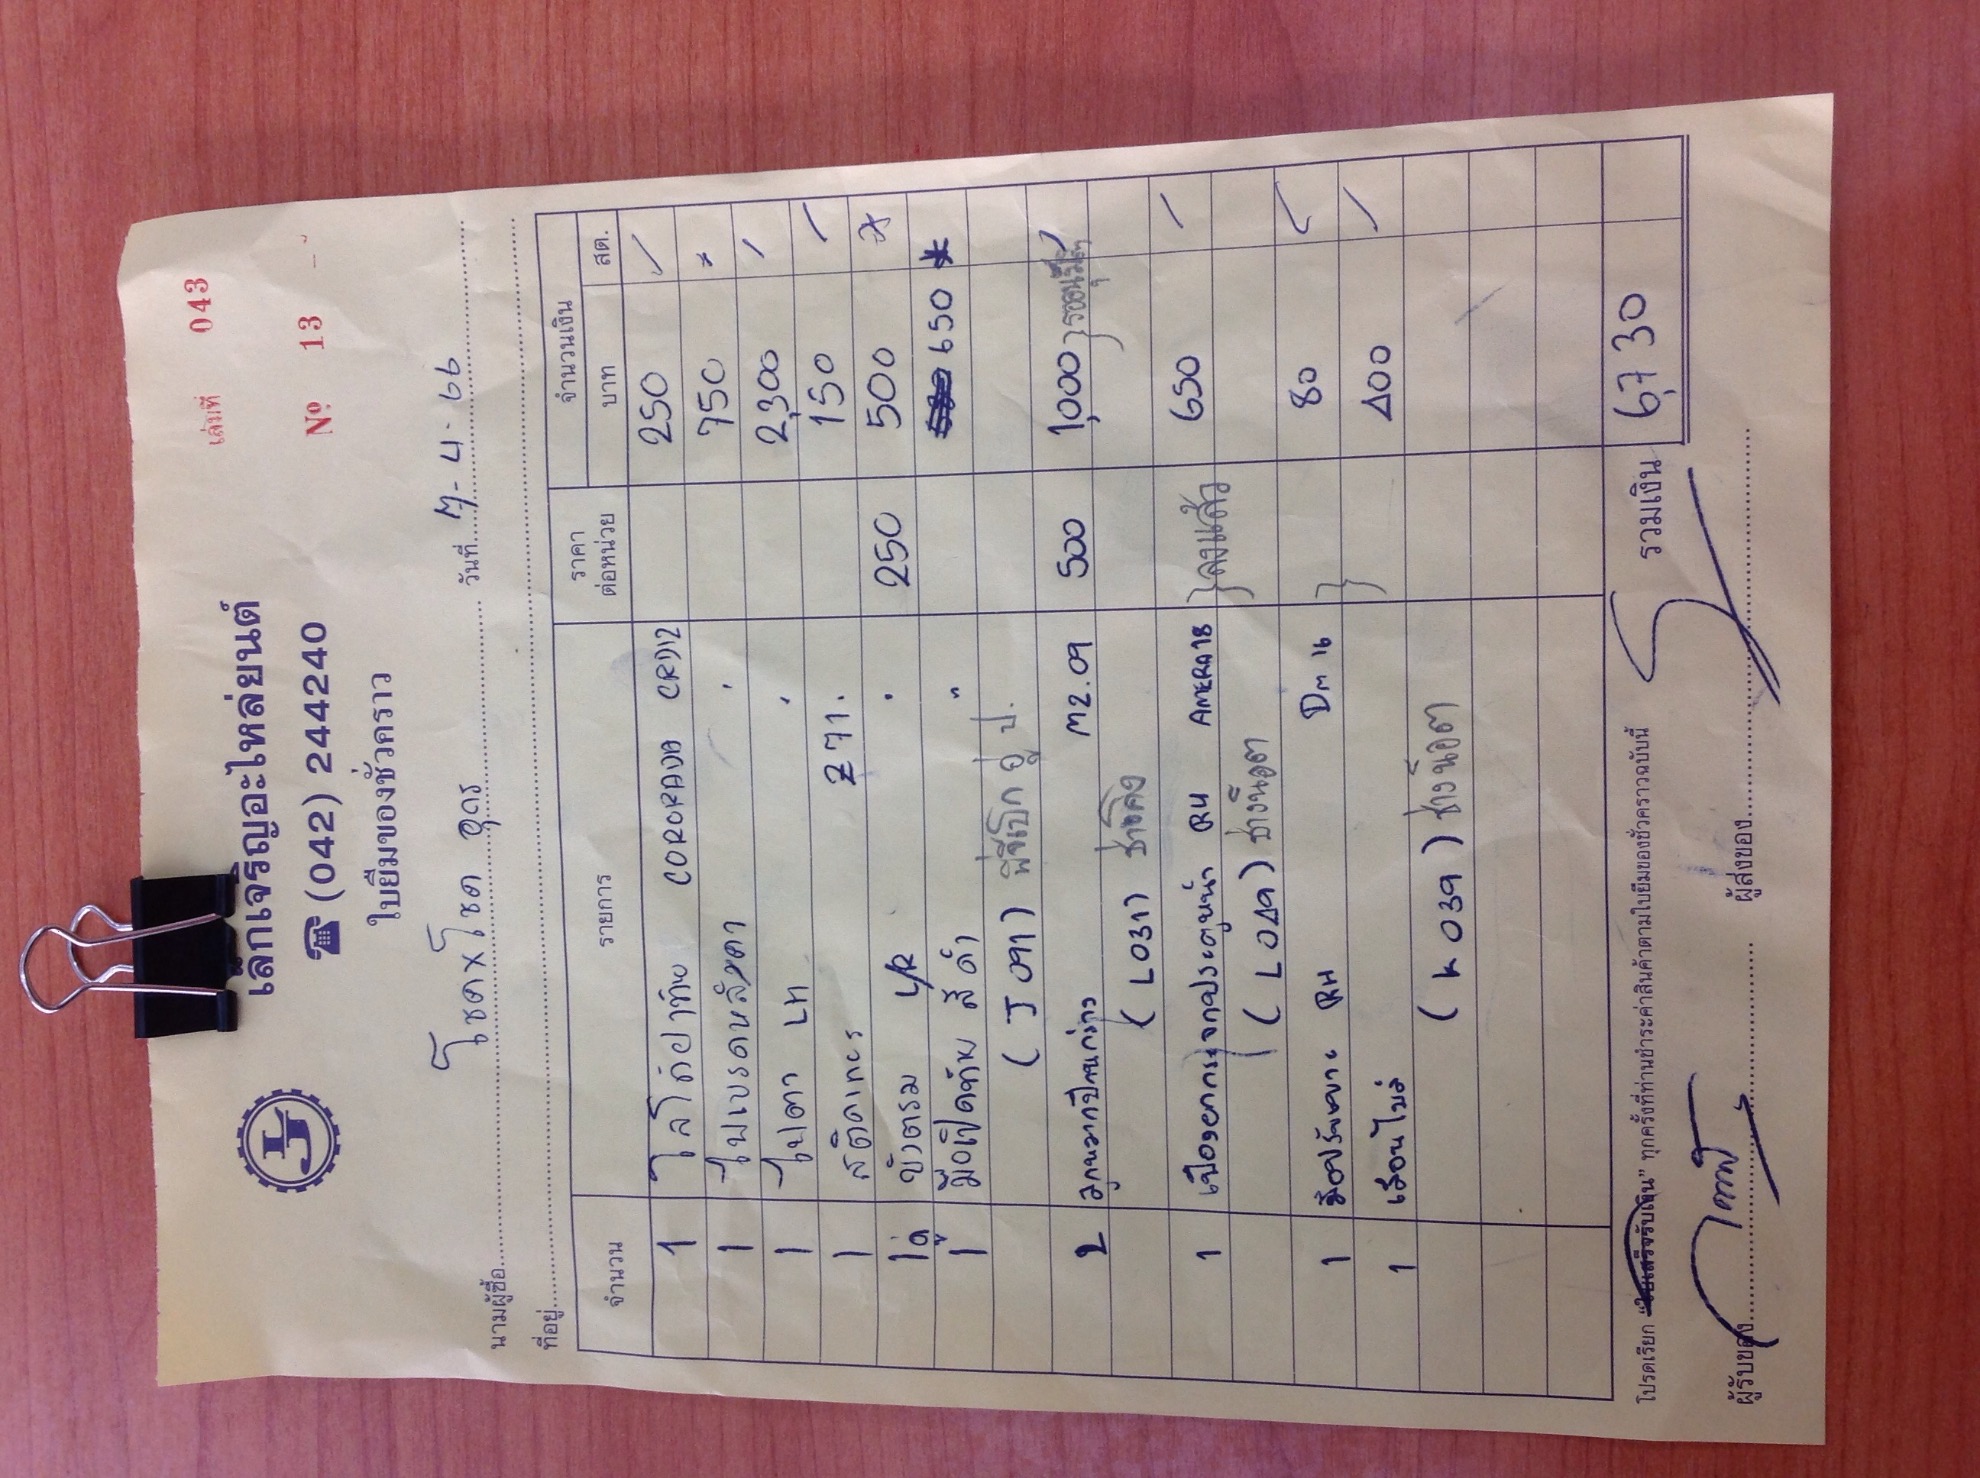 เล่มที่ 043
เล็กเจริญอะไหล่ยนต์
☎ (042) 244240
Nº 13
ใบยืมของชั่วคราว
นามผู้ซื้อ โชค x โชค อุดร วันที่ 7-4-66
ที่อยู่
จำนวน รายการ ราคาต่อหน่วย จำนวนเงิน
บาท สต.
1 โลโก้ฝาท้าย CORORADO CRD12 250
1 ไฟเบรคหลังคา " 750
1 ไฟตา LH " 2,300
1 สติกเกอร์ Z71. 150
1 คู่ คิ้วตรม L/R " 250 500
1 มือเปิดท้าย สีดำ " 650
( J 091 ) พี่จีโบ๊ท อู่ ป.
2 ลูกหมากปีกนกล่าง M2.09 500 1,000
( L031 ) ช่างโด่ง
1 เฟืองยกกระจกประตูหน้า RH AMERA18 650
( L 049 ) ช่างน๊อต ลงแล้ว
1 RH Dm 16 80
1 เรือนไมล์ 400
( K 039 ) ช่างน๊อต
รวมเงิน 6,730
โปรดเรียก "ใบเสร็จรับเงิน" ทุกครั้งที่ท่านชำระค่าสินค้าตามใบยืมของชั่วคราวฉบับนี้
ผู้รับของ ผู้ส่งของ